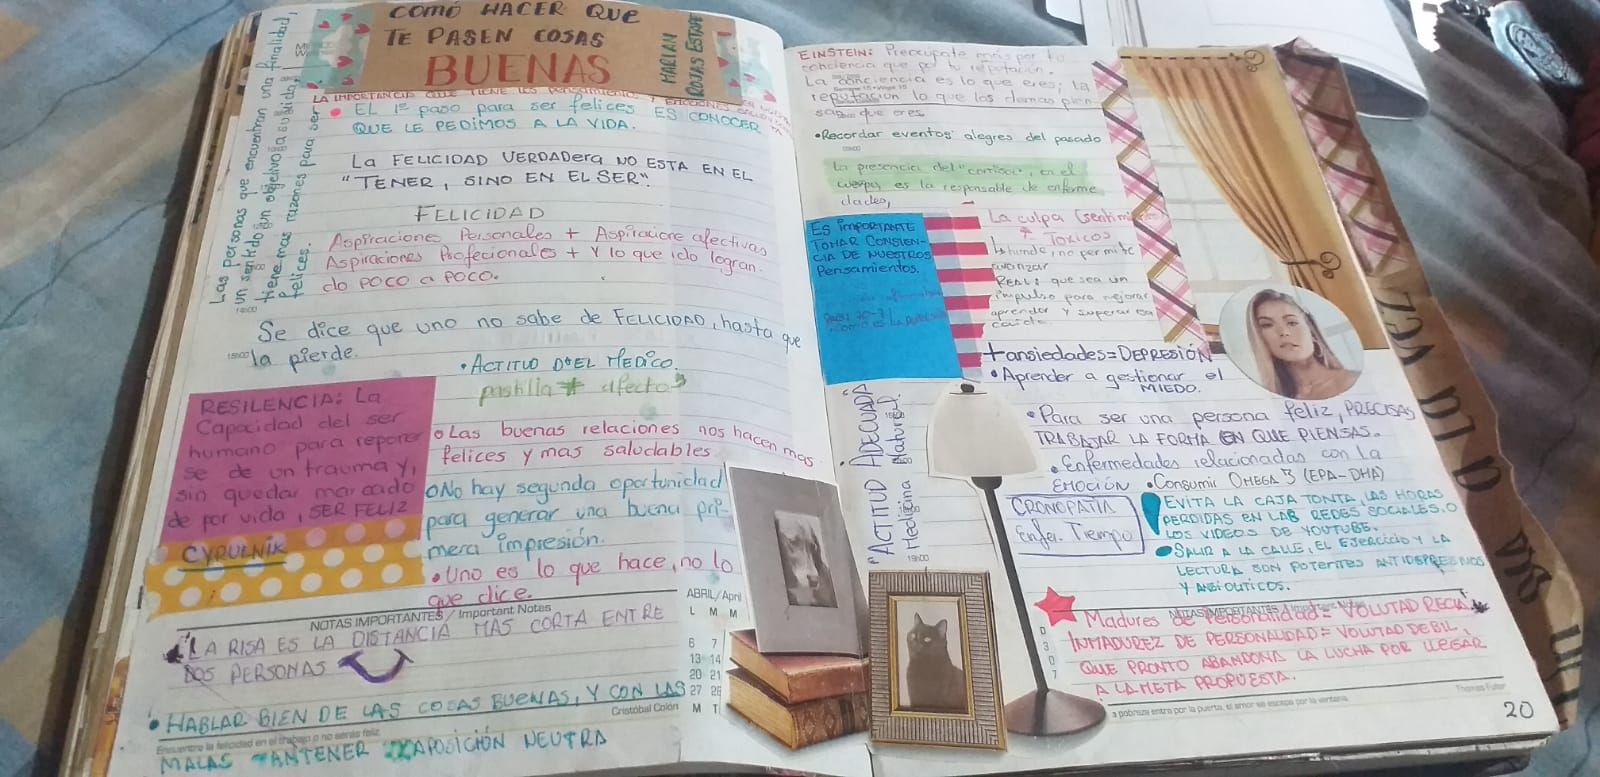 COMO HACER QUE
TE PASEN COSAS
BUENAS
MARIAN
ROJAS ESTAPE
Las personas que encuentran una finalidad,
un sentido, un objetivo a su vida,
tiene mas razones para ser
felices.
LA IMPORTANCIA QUE TIENE LOS PENSAMIENTOS Y EMOCIONES
• EL 1er paso para ser felices ES CONOCER
QUE LE PEDIMOS A LA VIDA.
La FELICIDAD VERDADera NO ESTA EN EL
"TENER, SINO EN EL SER".
FELICIDAD
Aspiraciones Personales + Aspiracione afectivas
Aspiraciones Profecionales + Y lo que ido logran-
do POCO a POCO.
Se dice que uno no sabe de FELICIDAD, hasta que
la pierde.
• ACTITUD DEL MEDICO.
pastilla ≠ afecto
RESILENCIA: La
Capacidad del ser
humano para reponer
se de un trauma y,
sin quedar marcado
de por vida, SER FELIZ
CYRULNIK
• Las buenas relaciones nos hacen mas
felices y mas saludables.
• No hay segunda oportunidad
para generar una buena pri-
mera impresión.
• Uno es lo que hace, no lo
que dice.
ABRIL/April
L M M
6 7
13 14
20 21
27 28
M T
NOTAS IMPORTANTES / Important Notes
LA RISA ES LA DISTANCIA MAS CORTA ENTRE
DOS PERSONAS
• HABLAR BIEN DE LAS COSAS BUENAS, Y CON LAS
Cristóbal Colón
Encuentre la felicidad en el trabajo o no serás feliz
MALAS MANTENER POSICIÓN NEUTRA
EINSTEIN: Preocupate más por tu
conciencia que por tu reputación.
La conciencia es lo que eres; la
reputación lo que los demas pien
san que eres
• Recordar eventos alegres del pasado
La presencia del "cortisol", en el
cuerpo, es la responsable de enferme
dades,
ES IMPORTANTE
TOMAR CONSIEN-
CIA DE NUESTROS
Pensamientos.
La culpa (sentimi
TOXICOS
te hunde, no permite
avanzar
REAL: que sea un
impulso para mejorar
aprender y superar esa
caida
+ ansiedades = DEPRESIÓN
• Aprender a gestionar el
MIEDO.
"ACTITUD ADECUADA
Medicina Natural.
• Para ser una persona feliz, PRECISAS
TRABAJAR LA FORMA EN QUE PIENSAS.
• Enfermedades relacionadas con la
EMOCIÓN
• Consumir OMEGA 3 (EPA-DHA)
CRONOPATIA
Enfer. Tiempo
EVITA LA CAJA TONTA, LAS HORAS
PERDIDAS EN LAS REDES SOCIALES, O
LOS VIDEOS DE YOUTUBE.
• SALIR A LA CALLE, EL EJERCICIO Y LA
LECTURA SON POTENTES ANTIDEPRESIVOS
Y ANSIOLITICOS.
NOTAS IMPORTANTES / Important Notes
Madures de Personalidad = VOLUTAD RECIA
INMADUREZ DE PERSONALIDAD = VOLUTAD DEBIL,
QUE PRONTO ABANDONA LA LUCHA POR LLEGAR
A LA META PROPUESTA.
Thomas Fuller
a pobreza entra por la puerta, el amor se escapa por la ventana.
20